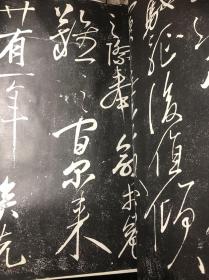 馳後值傾
之際奉命於危
難之間尔来
廿有一年矣先